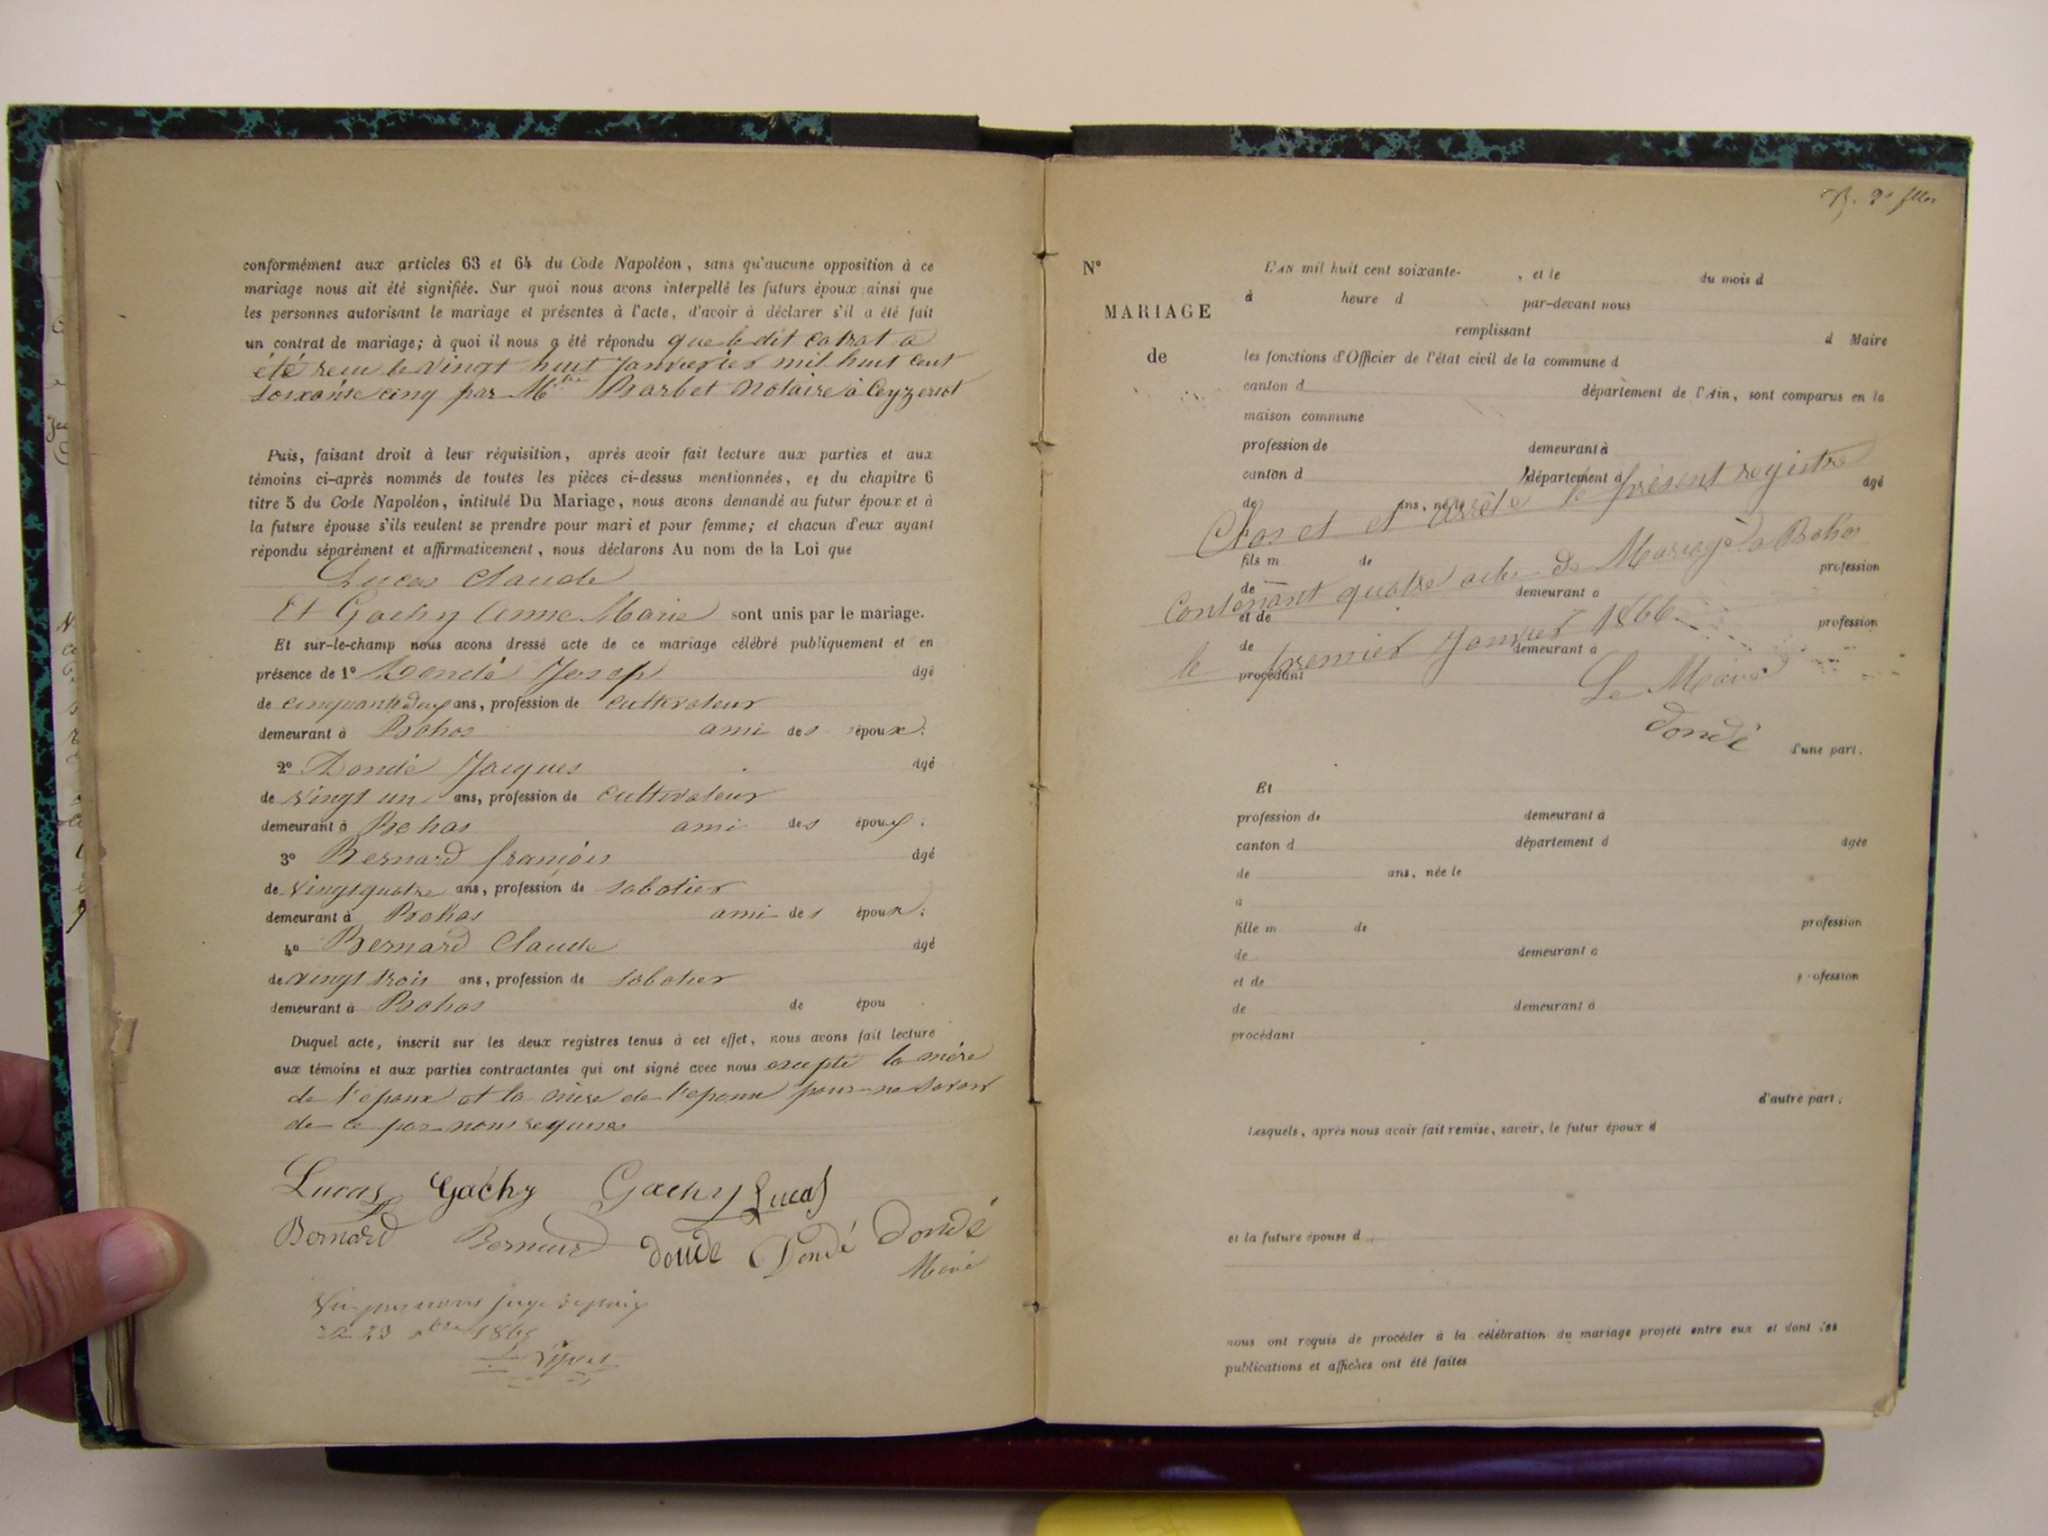 conformément aux articles 63 et 64 du Code Napoléon, sans qu'aucune opposition à ce
mariage nous ait été signifiée. Sur quoi nous avons interpellé les futurs époux ainsi que
les personnes autorisant le mariage et présentes à l'acte, d'avoir à déclarer s'il a été fait
un contrat de mariage; à quoi il nous a été répondu que le dit
été recu le vingt huit mil huit cent
soixante cinq par Barbet Notaire à Ceyzeriat
Puis, faisant droit à leur réquisition, après avoir fait lecture aux parties et aux
témoins ci-après nommés de toutes les pièces ci-dessus mentionnées, et du chapitre 6
titre 5 du Code Napoléon, intitulé Du Mariage, nous avons demandé au futur époux et à
la future épouse s'ils veulent se prendre pour mari et pour femme; et chacun d'eux ayant
répondu séparément et affirmativement, nous déclarons Au nom de la Loi que
Lucas Claude
Et Gachy Anne Marie sont unis par le mariage.
Et sur-le-champ nous avons dressé acte de ce mariage célébré publiquement et en
présence de 1° Dondé Josep âgé
de ans, profession de cultivateur
demeurant à Bohas ami des époux.
2° Dondé Jacques âgé
de vingt un ans, profession de cultivateur
demeurant à Bohas ami des époux.
3° Bernard françois âgé
de vingt quatre ans, profession de sabotier
demeurant à Bohas ami des époux;
4° Bernard Claude âgé
de vingt trois ans, profession de sabotier
demeurant à Bohas de épou
Duquel acte, inscrit sur les deux registres tenus à cet effet, nous avons fait lecture
aux témoins et aux parties contractantes qui ont signé avec nous excepté la mère
de l'époux et la mère de pour ne savoir
de ce par nous
Lucas Gachy Gachy Lucas
Bernard Bernard dondé Dondé Dondé
N°
MARIAGE
de
L'AN mil huit cent soixante- , et le du mois d
à heure d par-devant nous
remplissant d Maire
les fonctions d'Officier de l'état civil de la commune d
canton d département de l'Ain, sont comparus en la
maison commune
profession de demeurant à
canton d département d âgé
de ans, né le
Clos et arrêté le présent registre
fils m de profession
de demeurant à
Contenant quatre actes de Mariage à Bohas
et de profession
de demeurant à
le premier Janvier 1866
procédant
Le Maire
Dondé
d'une part.
Et
profession de demeurant à
canton d département d âgée
de ans, née le
à
fille m de profession
de demeurant à
et de profession
de demeurant à
procédant
d'autre part;
Lesquels, après nous avoir fait remise, savoir, le futur époux d
et la future épouse d
nous ont requis de procéder à la célébration du mariage projeté entre eux et dont les
publications et affiches ont été faites